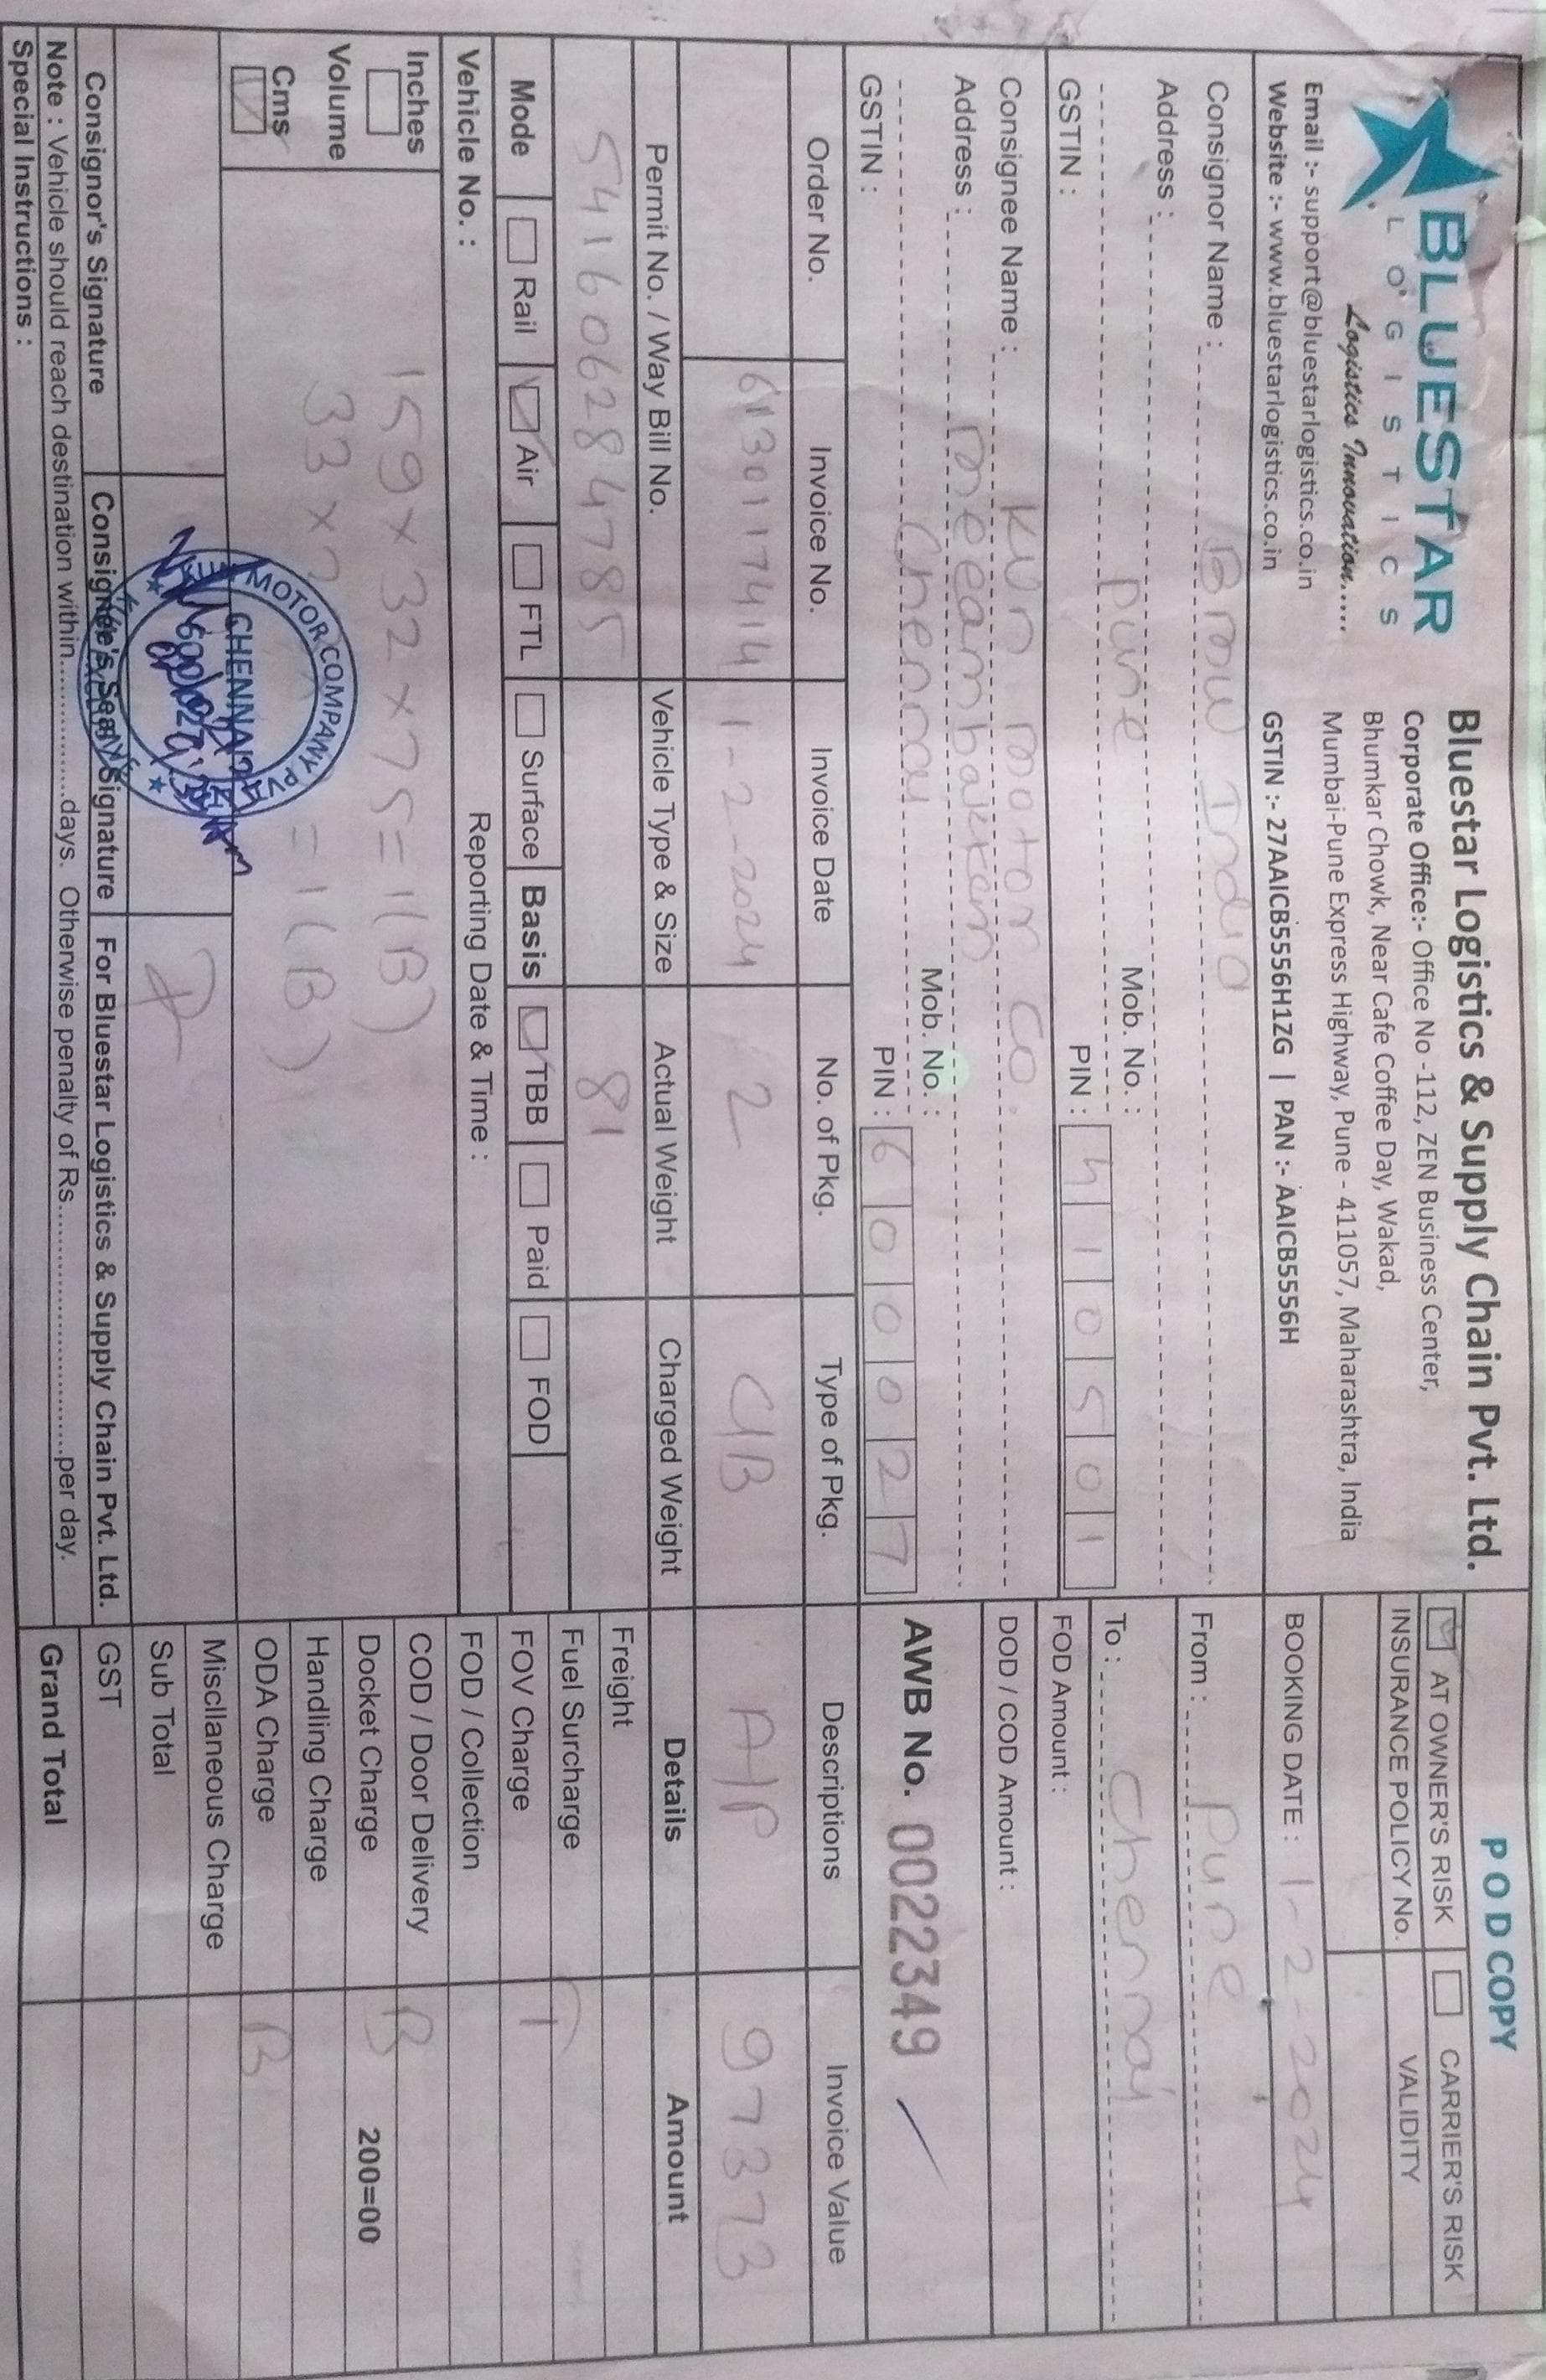 BLUESTAR
LOGISTICS
Logistics Innovation.....
Email :- support@bluestarlogistics.co.in
Website :- www.bluestarlogistics.co.in
Bluestar Logistics & Supply Chain Pvt. Ltd.
Corporate Office:- Office No -112, ZEN Business Center,
Bhumkar Chowk, Near Cafe Coffee Day, Wakad,
Mumbai-Pune Express Highway, Pune - 411057, Maharashtra, India
GSTIN :- 27AAICB5556H1ZG | PAN :- AAICB5556H
POD COPY
AT OWNER'S RISK CARRIER'S RISK
INSURANCE POLICY No. VALIDITY
BOOKING DATE : 1-2-2024
Consignor Name : BMW India
Address :
Pune Mob. No. :
GSTIN : PIN : 410501
From : Pune
To : Chennai
FOD Amount :
DOD / COD Amount :
Consignee Name : KUN motor co.
Address : meeambakkem
Chennai Mob. No. :
GSTIN : PIN : 600027
AWB No. 0022349
Order No. Invoice No. Invoice Date No. of Pkg. Type of Pkg. Descriptions Invoice Value
6130117414 1-2-2024 2 C/B A/P 97373
Permit No. / Way Bill No. Vehicle Type & Size Actual Weight Charged Weight Details Amount
541606284785 81
Freight
Fuel Surcharge
Mode Rail Air FTL Surface Basis TBB Paid FOD
T
FOV Charge
Vehicle No. : Reporting Date & Time :
FOD / Collection
Inches
Volume
Cms
159 x 32 x 75 = 1(B)
33 x = 1(B)
COD / Door Delivery B
Docket Charge 200=00
Handling Charge
ODA Charge B
Miscllaneous Charge
Sub Total
GST
Grand Total
KUN MOTOR COMPANY PVT
CHENNAI
600027
Consignor's Signature Consignee's Seal / Signature For Bluestar Logistics & Supply Chain Pvt. Ltd.
Note : Vehicle should reach destination within.................days. Otherwise penalty of Rs..............................per day.
Special Instructions :